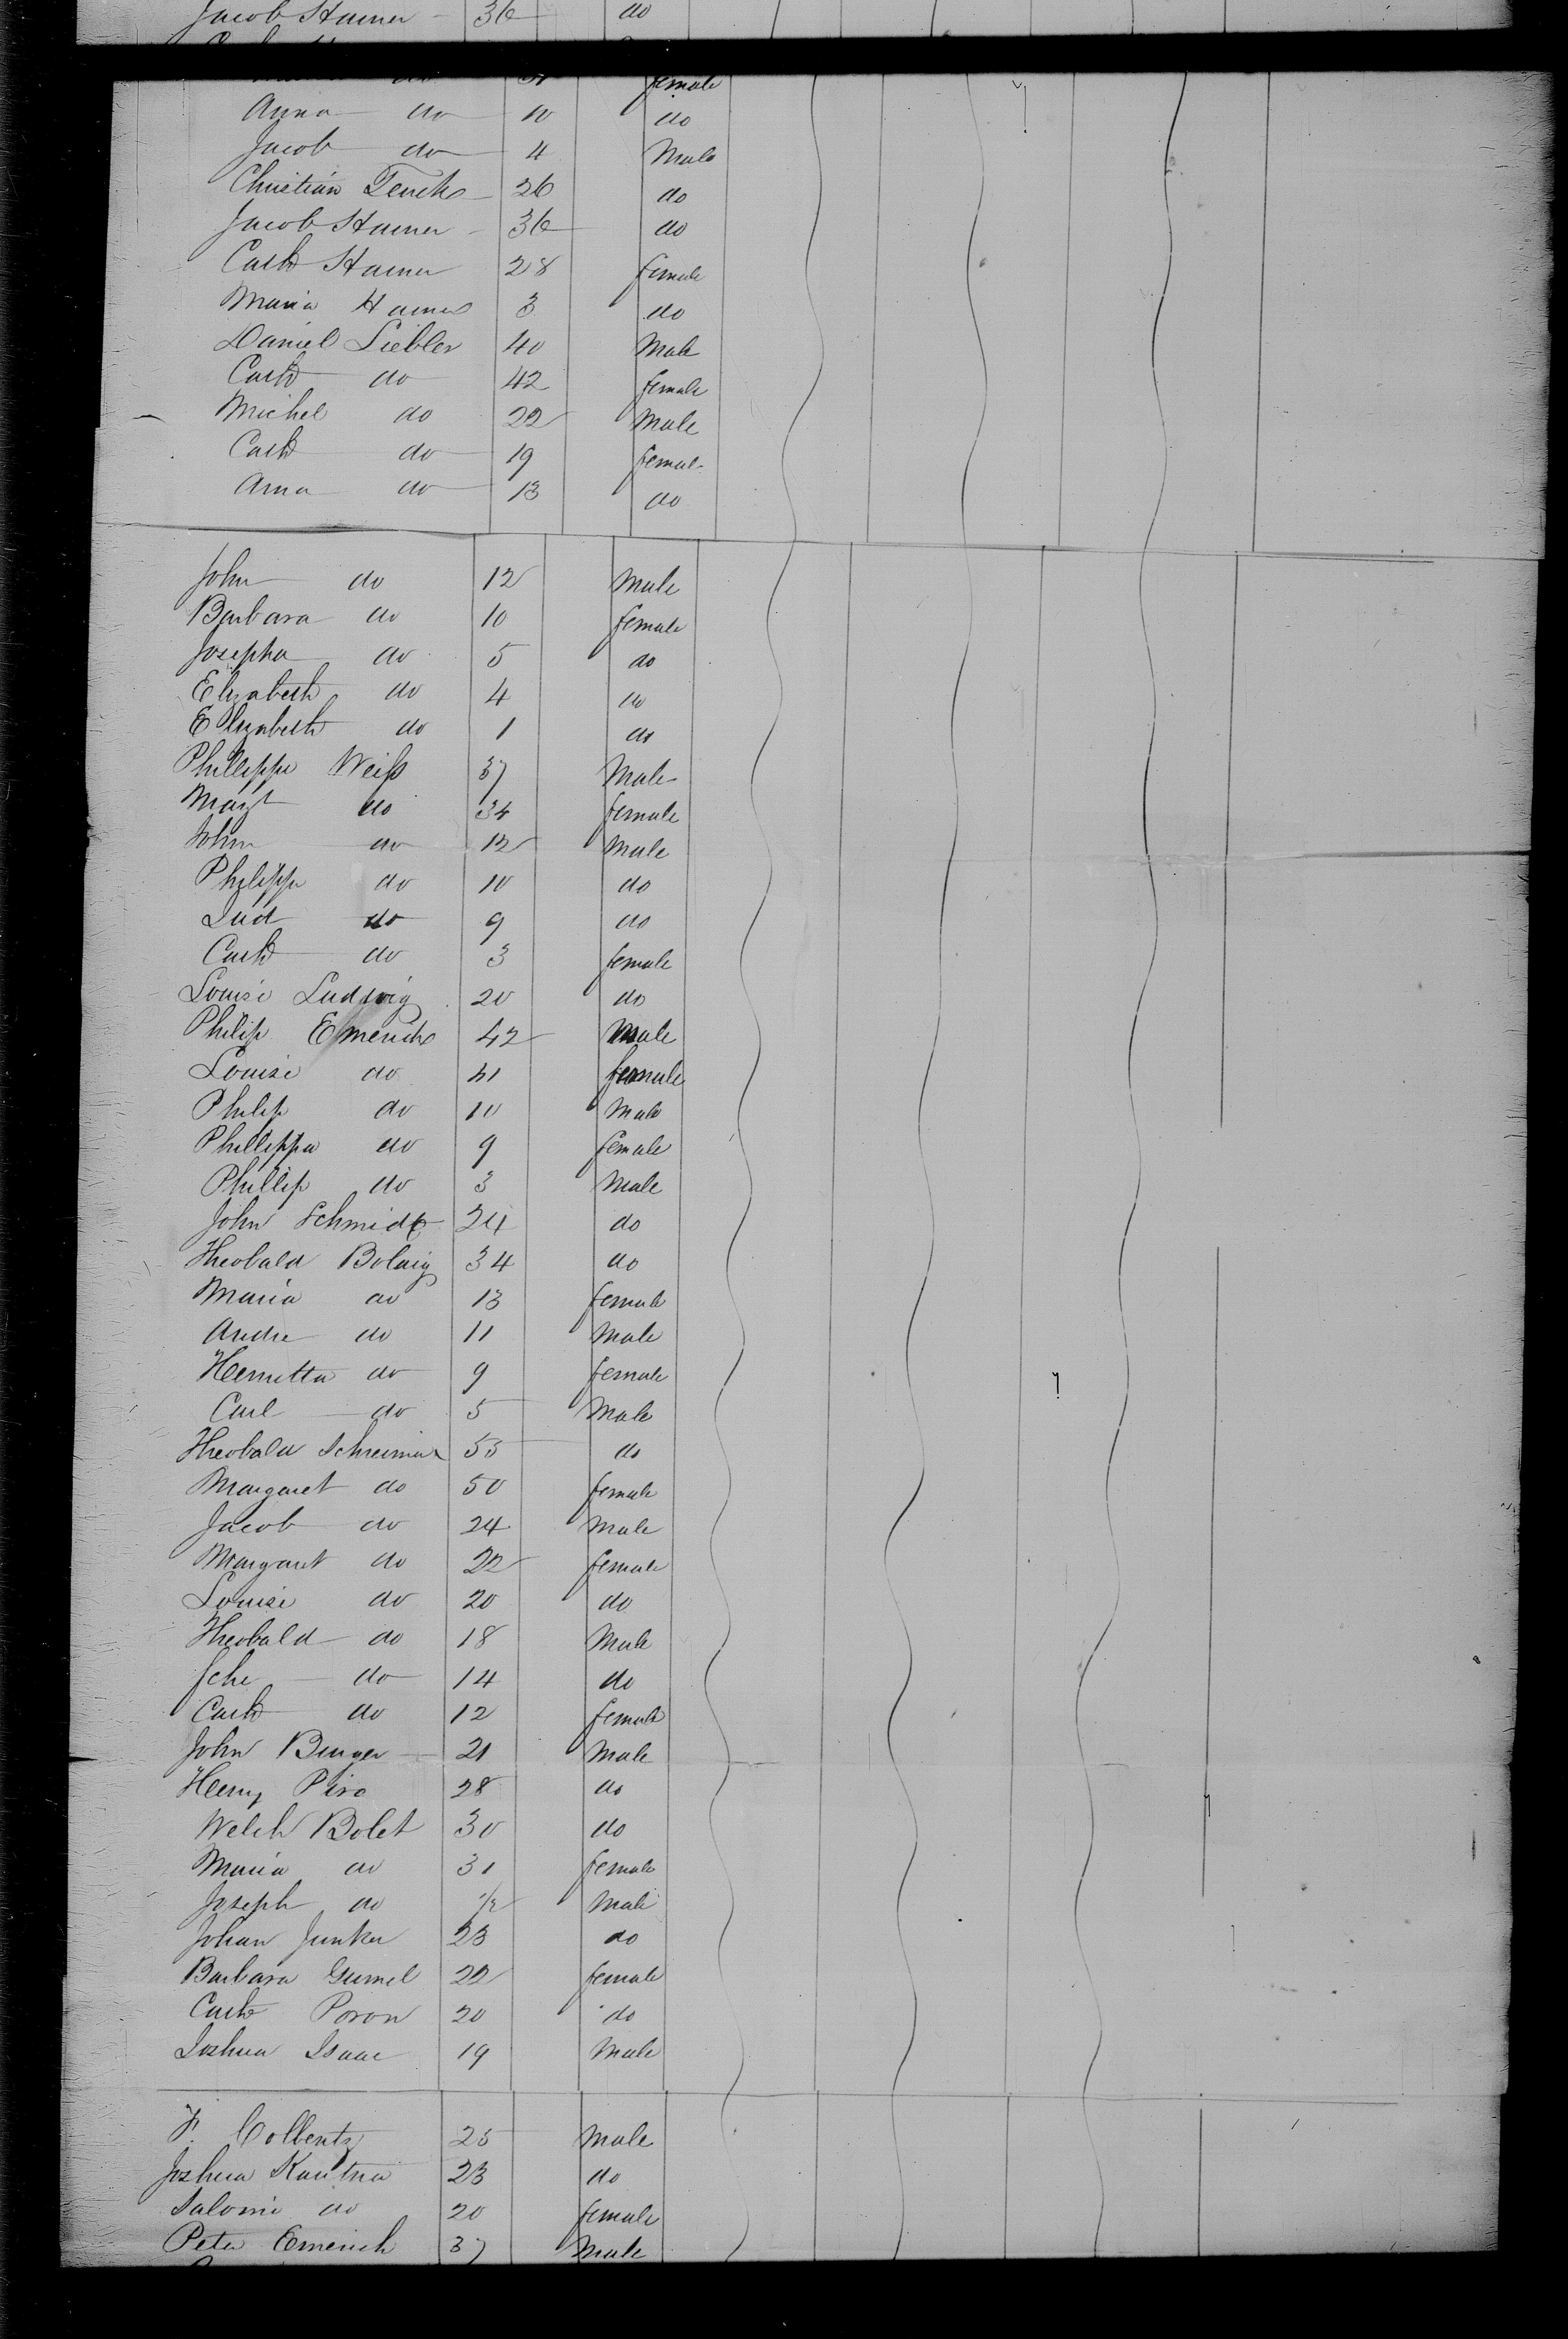 Jacob Hamer 36 do
female
Anna do 10 do
Jacob do 4 Male
Christian 26 do
Jacob Hamer 36 do
Cath Hamer 28 female
Maria Hamer 3 do
Daniel Siebler 40 Male
Cath do 42 female
Michel do 22 Male
Cath do 19 female
Anna do 13 do
John do 12 Male
Barbara do 10 female
Josepha do 5 do
Elizabeth do 4 do
Elizabeth do 1 do
Phillippe Weiß 37 Male
Margt do 34 female
John do 12 Male
Philippe do 10 do
Lud do 9 do
Cath do 3 female
Louise Ludwig 20 do
Philip Emerich 42 Male
Louise do 41 female
Philip do 10 Male
Phillippa do 9 female
Phillip do 3 Male
John Schmidt 24 do
Theobald Bolaig 34 do
Maria do 13 female
Andre do 11 Male
Henrietta do 9 female
Carl do 5 Male
Theobald 55 do
Margaret do 50 female
Jacob do 24 Male
Margaret do 22 female
Louise do 20 do
Theobald do 18 Male
do 14 do
Cath do 12 female
John Burger 21 Male
Henry Piro 28 do
Welch Bolet 30 do
Maria do 31 female
Joseph do 1/2 Male
Johan Junker 23 do
Barbara Gumel 22 female
Cath Poron 20 do
Joshua Isaac 19 Male
F. Collentz 25 Male
Joshua Kautna 23 do
Salomi do 20 female
Peter Emerich 37 Male